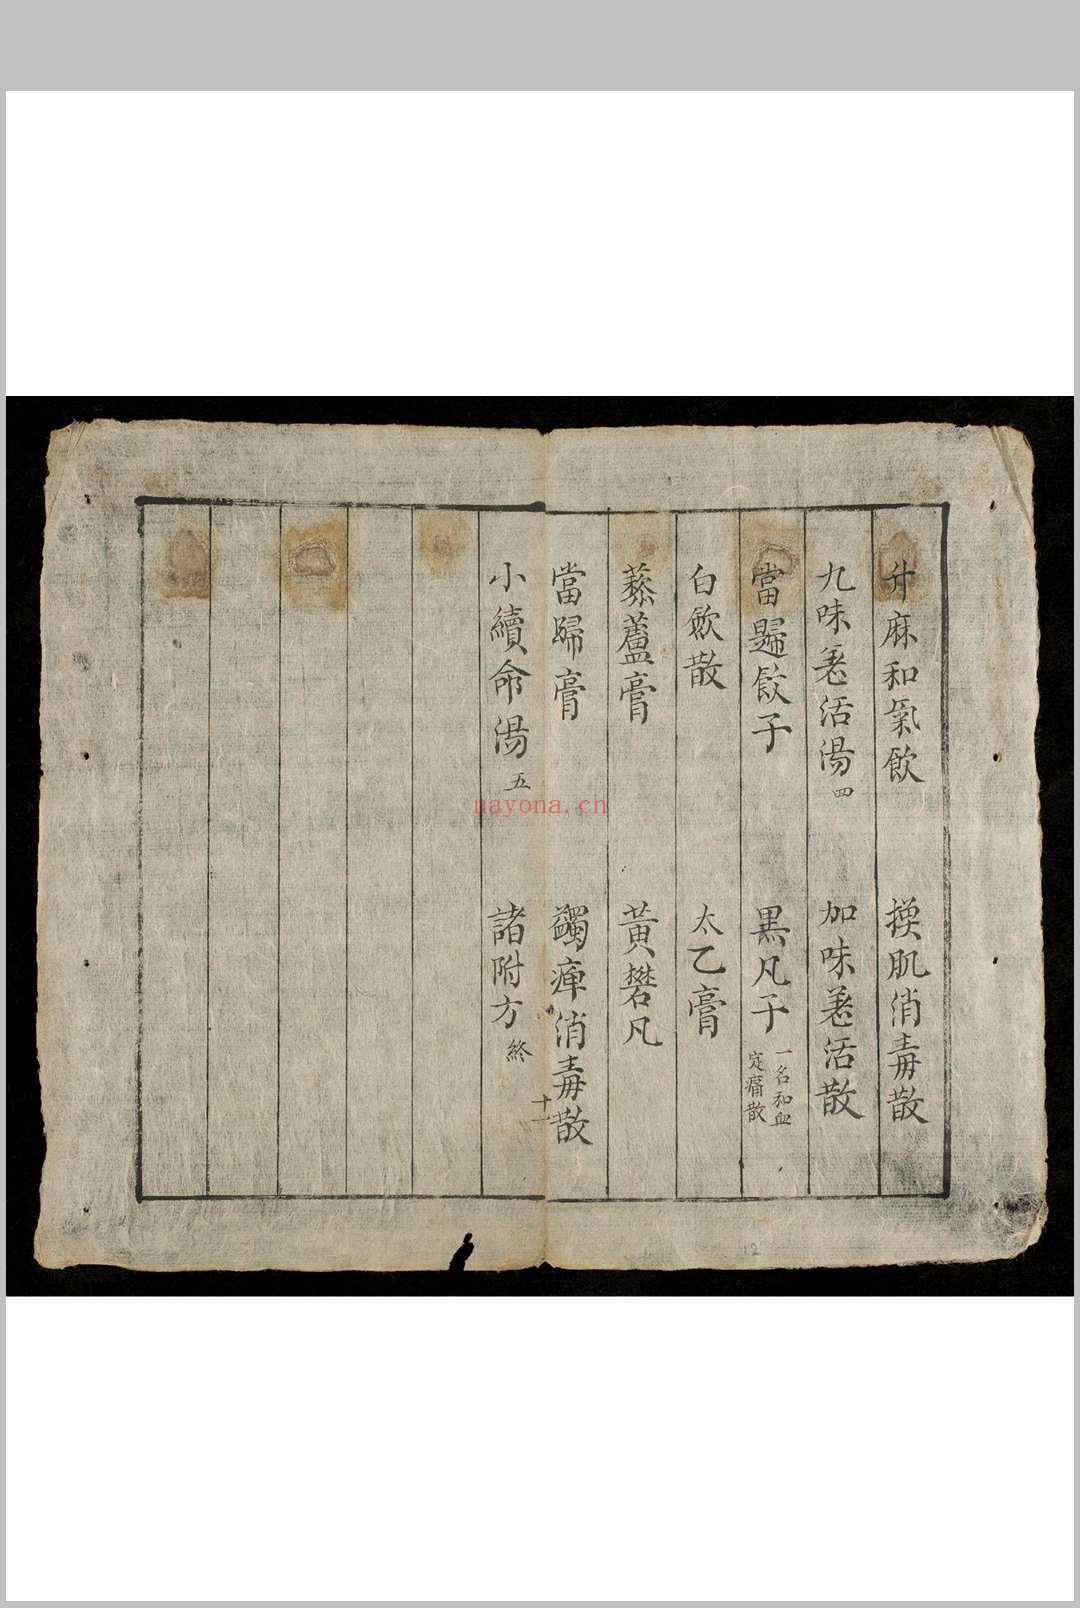 升麻和氣飲 換肌消毒散
九味羌活湯四 加味羌活散
當歸飲子 黑凡子一名和血定痛散
白飲散 太乙膏
藜蘆膏 黃礬凡
當歸膏 蠲痺消毒散
十一
小續命湯五 諸附方終
12
nayona.cn